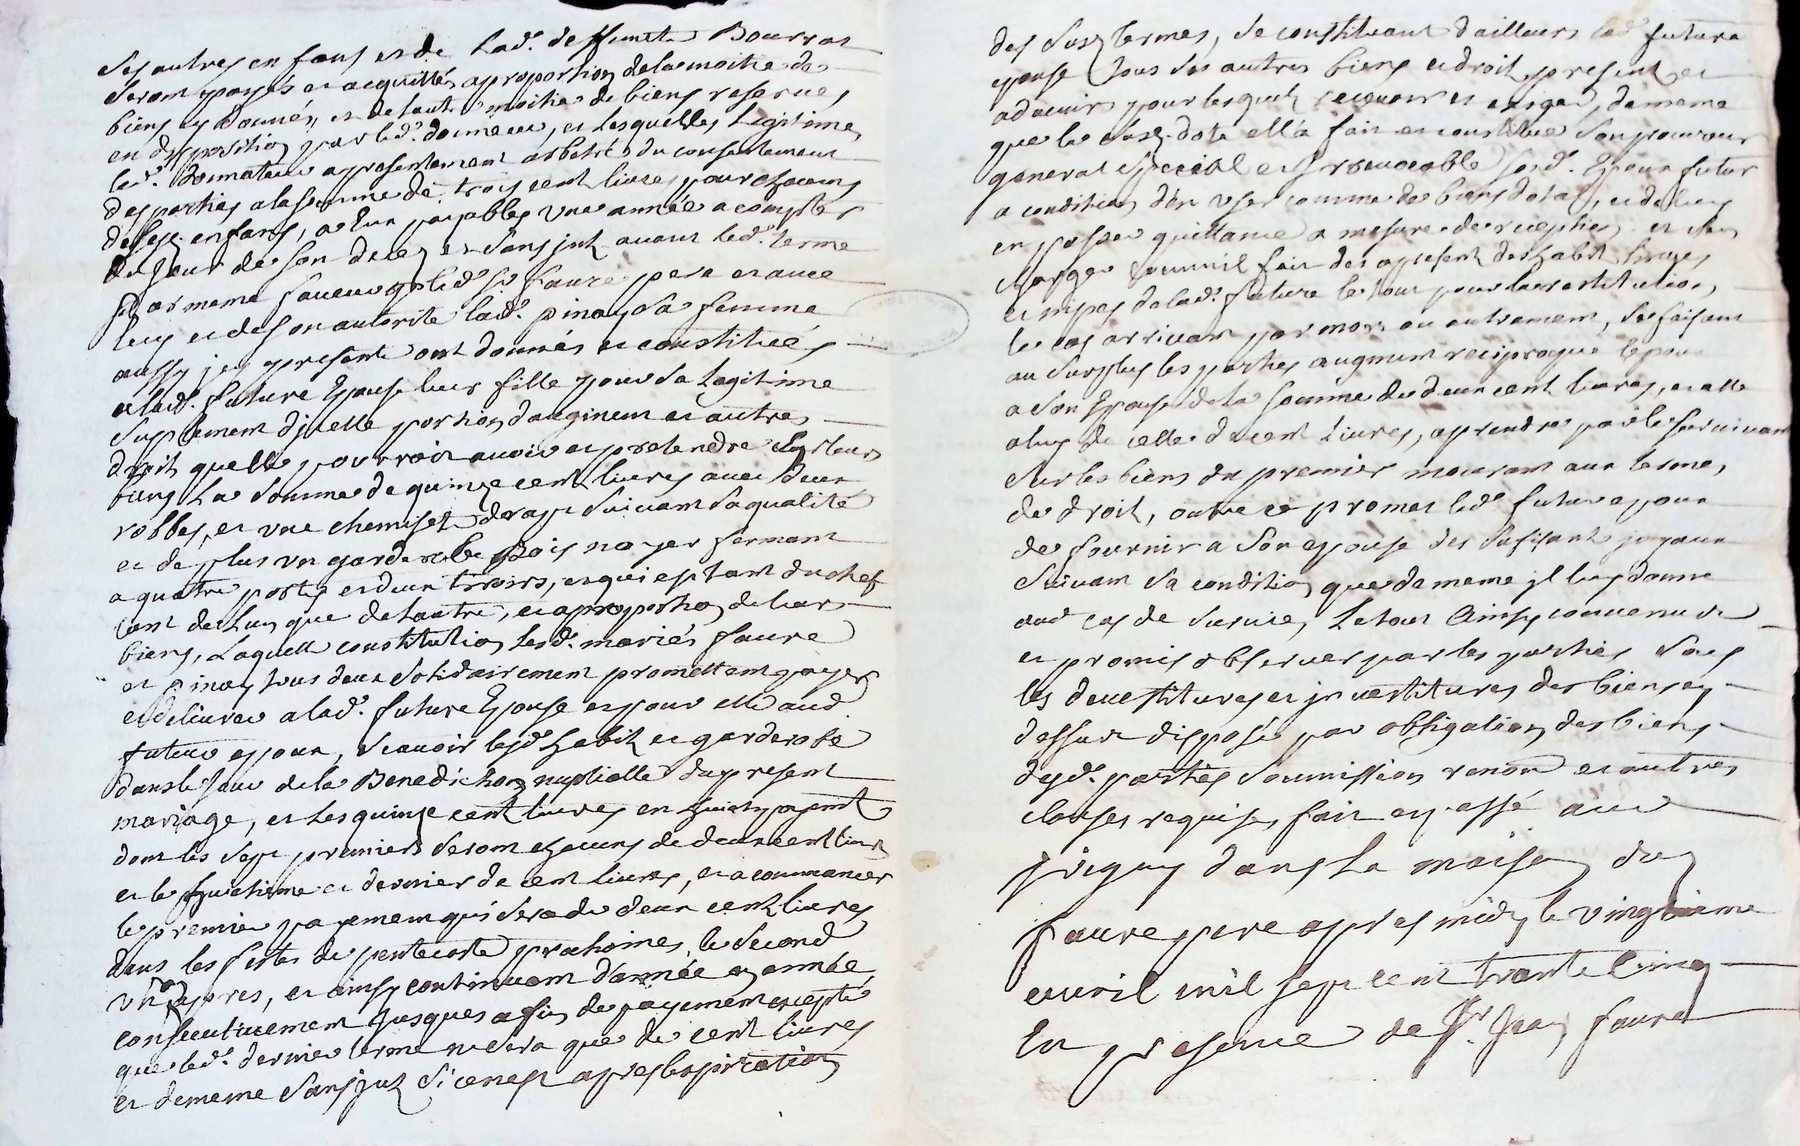 ses autres enfans et de lad.e deffunte Bourras
seront payés et acquittés a proportion de la moitie de
biens y donnés, et de lautre moitie de biens reservés
en disposition par led. donneur, et lesquelles legitimes
led. donnateur a presentement arbitré du consentement
des parties a la somme de trois cent livres pour chacuns
de sesd. enfans, a eux payables une année a compter
du jour de son deces et sans jnt. avant led. terme
Et a meme faveur que led. Sr. faure pere et avec
luy et de son autorité lad. pinay sa femme
aussy jcy presente ont donnés et constitués
a lad. future Epouse leur fille pour sa legitime
suplement djcelle portion daugment et autres
droits quelle pourroit avoir et pretendre sur leurs
biens la somme de quinze cent livres avec deux
robbes, et une chemiset de rape suivant sa qualité
et de plus un garderobe bois noyer fermant
a quatre portes et deux tiroirs, et qui est tant du chef
tant de lun que de lautre, et a proportion de leurs
biens, Laquelle constitution lesd. mariés faure
et pinay tous deux solidairement promettent payer
et delivrer a lad. future Epouse et pour elle aud.
futur epoux, scavoir lesd. habits et garderobe
dans le jour de la Benediction nuptialle du present
mariage, et les quinze cent livres en huict payements
dont les sept premiers seront chacuns de deux cent livres
et le huictieme et dernier de cent livres, et a commancer
le premier payement qui sera de deux cent livres
dans les festes de pentecoste prochaines, le second
un an apres, et ainsy continuant d'année en année
consecutivement jusques a fin de payement excepté
que led. dernier terme ne sera que de cent livres
et de meme sans jnt. si ce nest apres lexpiration
des susd. termes, se constituant d'ailleurs lad. future
epouse tous ses autres biens et droits presents et
advenir pour lesquels recouvrer et exiger, de meme
que la susd. dote elle a fait et constitué son procureur
general special et jrrevocable sond. Epoux futur
a condition d'en user comme de biens dotal, et de luy
en passer quittance a mesure de reception et sen
charger comme il fait des a present des habits linges
et nipes de lad. future le tout pour la restitution,
le cas arrivant par mort ou autrement, se faisant
au surplus les parties augment reciproque lepoux
a son Epouse de la somme de deux cent livres, et elle
a luy de celle de cent livres, a prendre par le survivant
sur les biens du premier mourant aux termes
de droit, outre ce promet led. futur epoux
de fournir a son epouse des sufisants joyaux
suivant sa condition que de meme jl luy donne
aud. cas de survie, Le tout ainsy convenu
et promis observer par les parties sous
les devestitures et jnvestitures des biens cy
dessus disposés par obligation des biens
desd. parties soumission renon.on et autres
clauses requises, fait et passé aud.
jrigny dans la maison dud.
faure pere apres midy le vingtieme
avril mil sept cent trente cinq
En presence de Sr. Jean faure